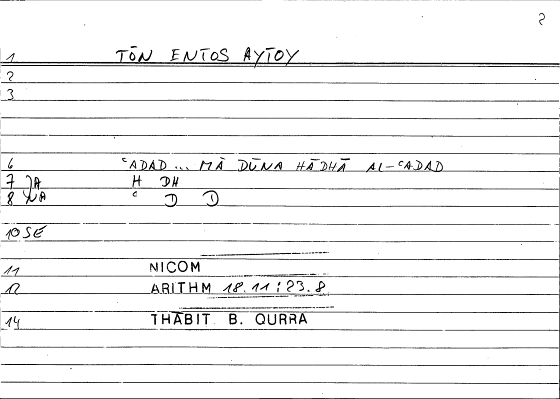 2
1 TŌN ENTOS AYTOY
2
3
6 ʿADAD ... MĀ DŪNA HĀDHĀ AL-ʿADAD
7 JA H DH
8 NA ʿ D D
10 SE
11 NICOM
12 ARITHM 18.11; 23.8
14 THĀBIT B. QURRA